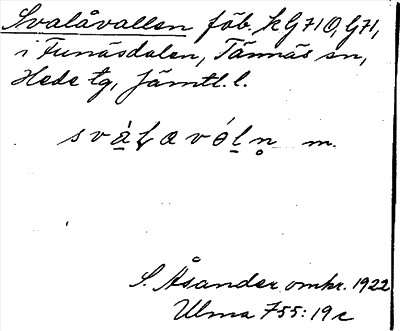 Svalåvallen fäb. k G 710, G 71,
i Funäsdalen, Tännäs sn,
Hede tg, Jämtl. l.
m.
S. Åsander omkr. 1922
Ulma 755:19c